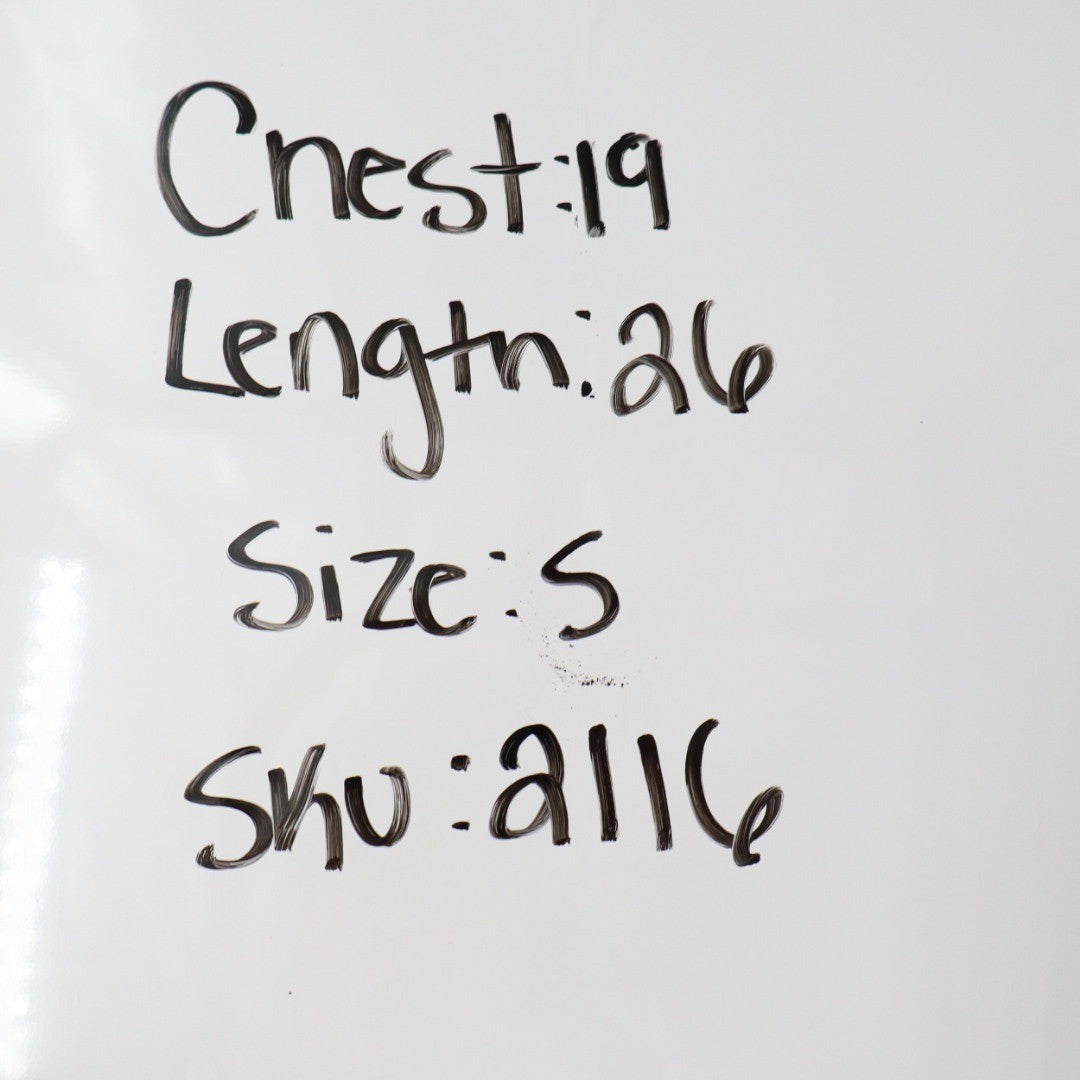 Chest:19
Length:26
Size:S
Sku:2116